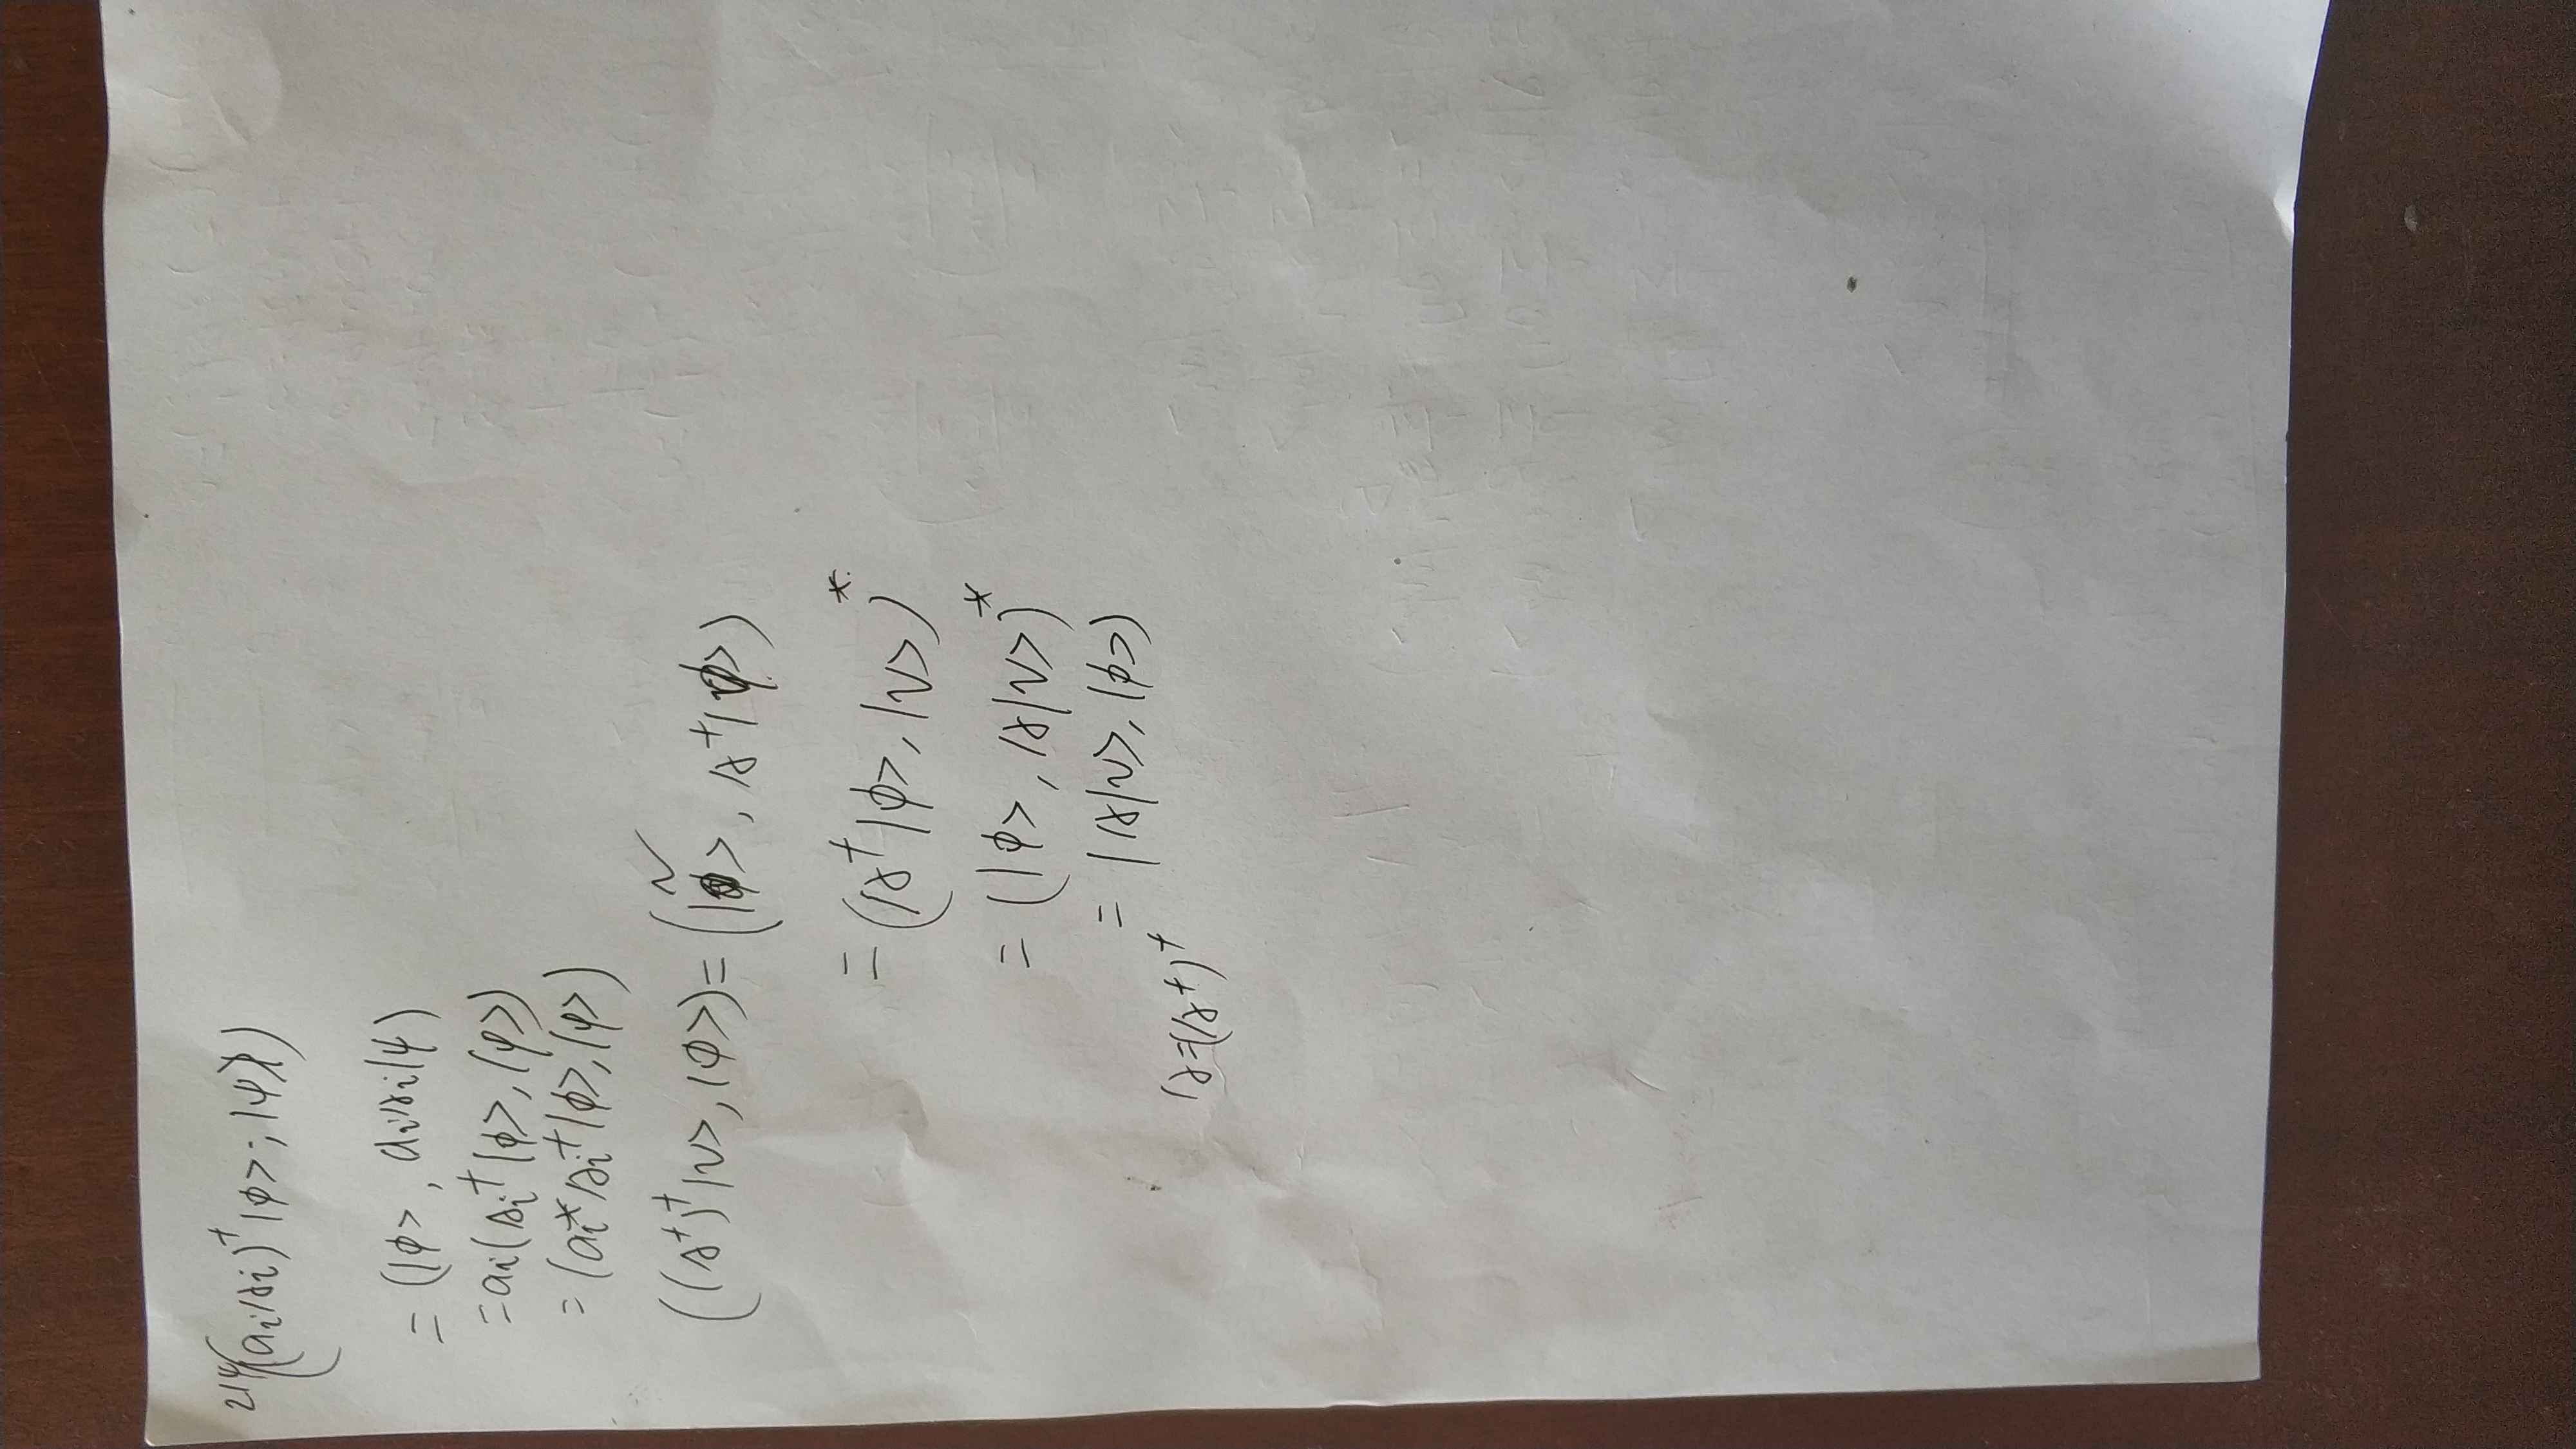 214 ((aᵢAᵢ)⁺|φ>, |ψ>)
= (|φ>, aᵢAᵢ|ψ)
= aᵢ(Aᵢ⁺|φ>, |φ>)
= (aᵢ*Aᵢ⁺|φ>, |φ>)
((A⁺)⁺|v>, |φ>) = (|v>, A⁺|φ>)
= (A⁺|φ>, |v>)*
= (|φ>, A|v>)*
= |A|v>, |φ>)
A=(A⁺)⁺